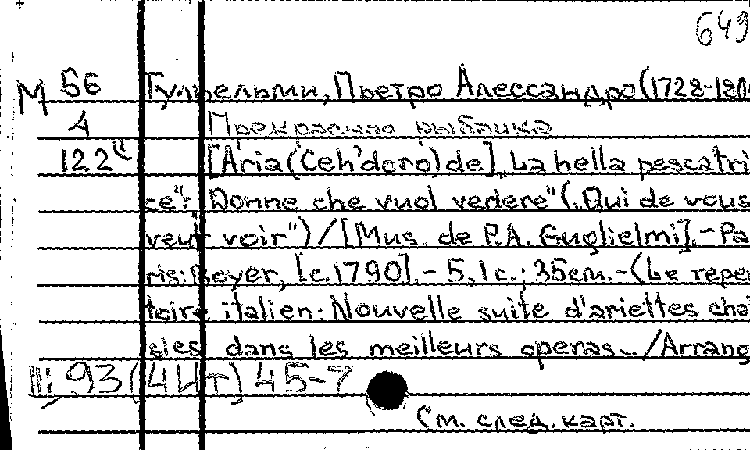 649
М 56 Гульельми, Пьетро Алессандро (1728-180
4 Прекрасная рыбачка
122" [Aria (Ceh'doro) de] La hella pescatri
ce": Donne che vuol vedere" („Qui de vous
veut voir") / [Mus. de P.A. Guglielmi]. - Pa
ris: Boyer, [c.1790]. - 5, 1 c.; 35cm. - (Le reper
toire italien: Nouvelle suite d'ariettes choi
sies dans les meilleurs operas... / Arrang
93(4Ит)45-7
См. след. карт.